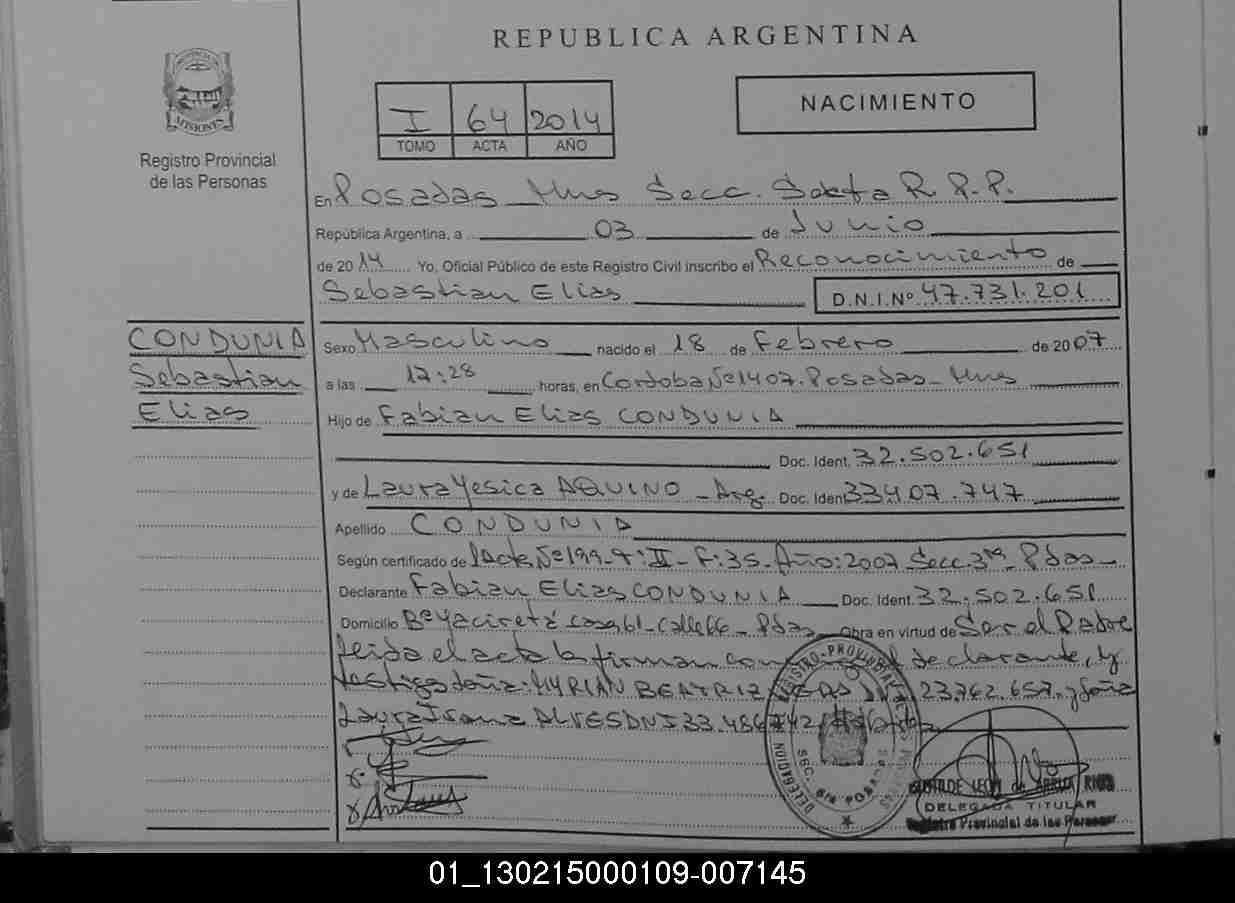 REPUBLICA ARGENTINA
MISIONES
Registro Provincial
de las Personas
I 64 2014
TOMO ACTA AÑO
NACIMIENTO
En Posadas Mnes Secc. Sexta R.P.P.
República Argentina, a 03 de Junio
de 2014 Yo, Oficial Público de este Registro Civil inscribo el Reconocimiento de
Sebastian Elias D.N.I.Nº 47.731.201
CONDUNIA
Sebastian
Elias
Sexo Masculino nacido el 18 de Febrero de 2007
a las 17:28 horas, en Cordoba Nº1407. Posadas - Mnes
Hijo de Fabian Elias CONDUNIA
Doc. Ident. 32.502.651
y de Laura Yesica AQUINO - Arg. Doc. Ident 33407.747
Apellido CONDUNIA
Según certificado de Acta Nº199-T:II-F:35-Año:2007 Secc.3ra Pdas
Declarante Fabian Elias CONDUNIA Doc. Ident. 32.502.651
Domicilio Bº Yacireta casa 61 - Calle 66 - Pdas Obra en virtud de Ser el Padre
leida el acta la firman con el declarante, y
testigo doña: MYRIAN BEATRIZ DNI 23.762.657 y doña
Laura ALVES DNI 33.486742
REGISTRO PROVINCIAL
DELEGACION
SEC. 6ta POSADAS
de ARRUA RIOS
DELEGADA TITULAR
Registro Provincial de las Personas
01_130215000109-007145